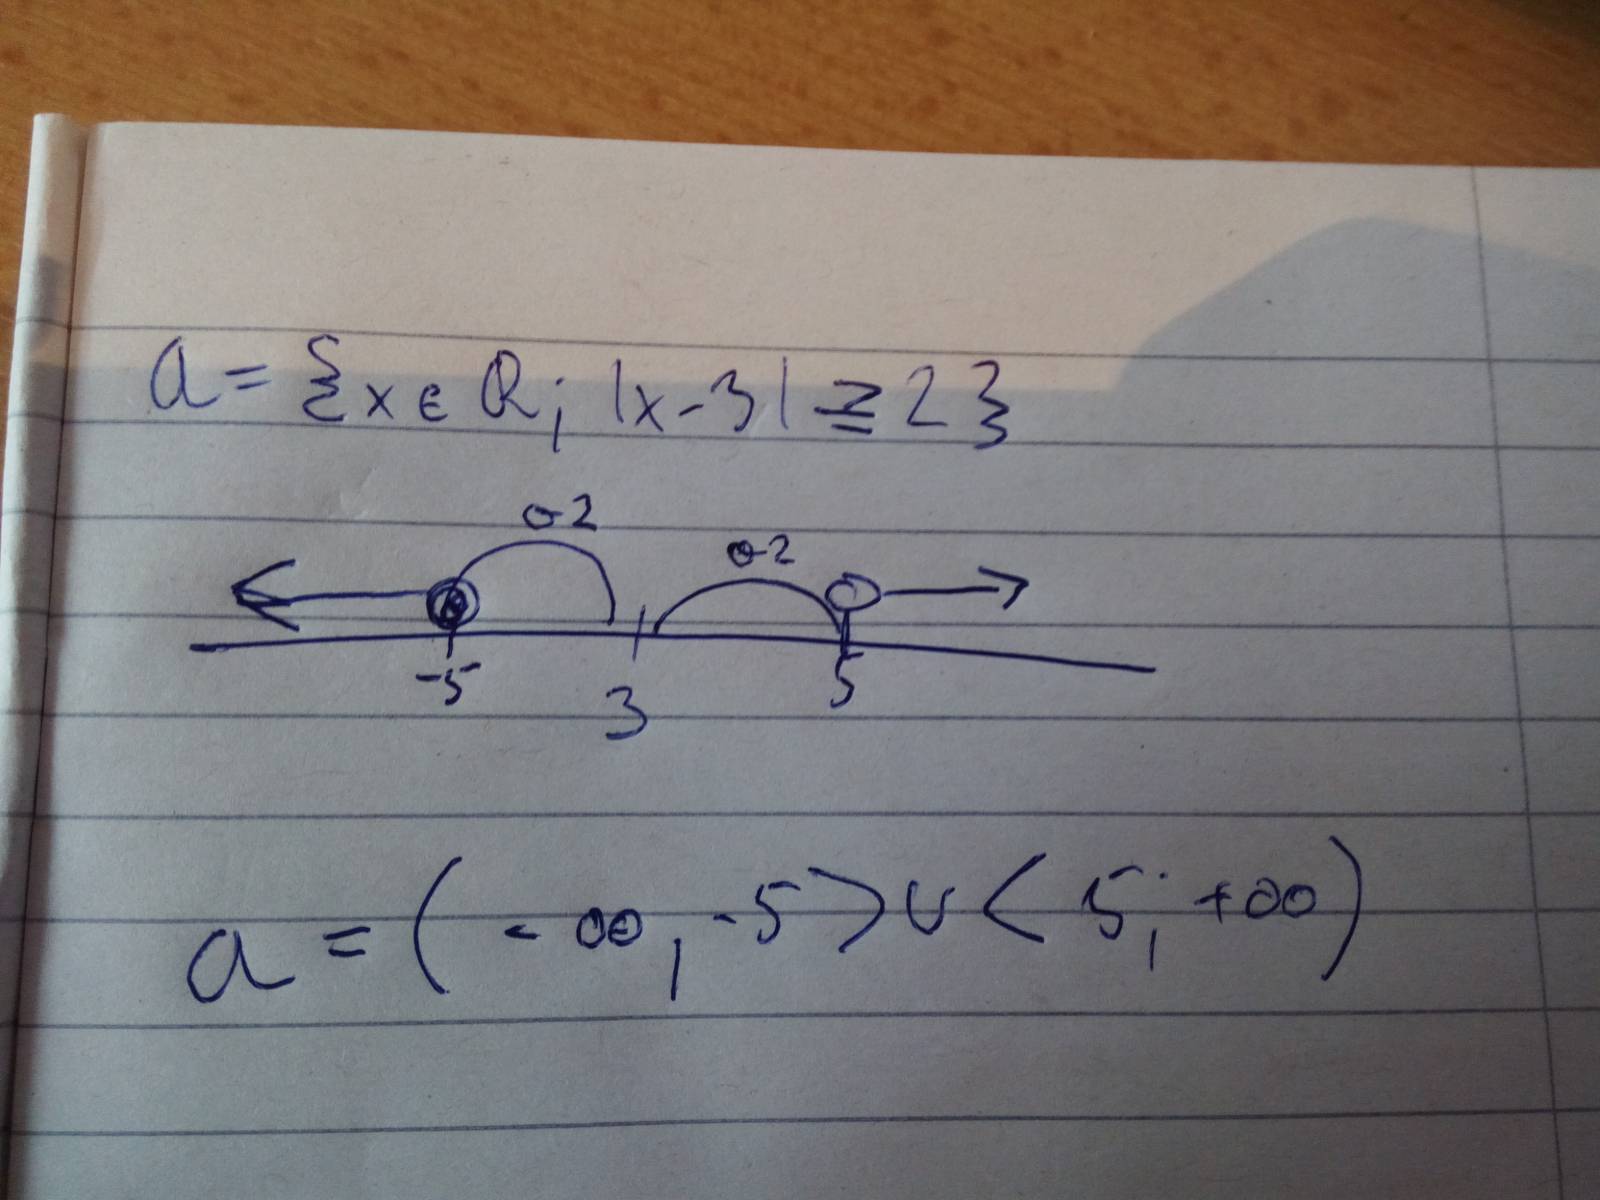 a = {x ∈ R; |x-3| ≥ 2}
o 2
o 2
-5 3 5
a = (-∞, -5> ∪ <5; +∞)